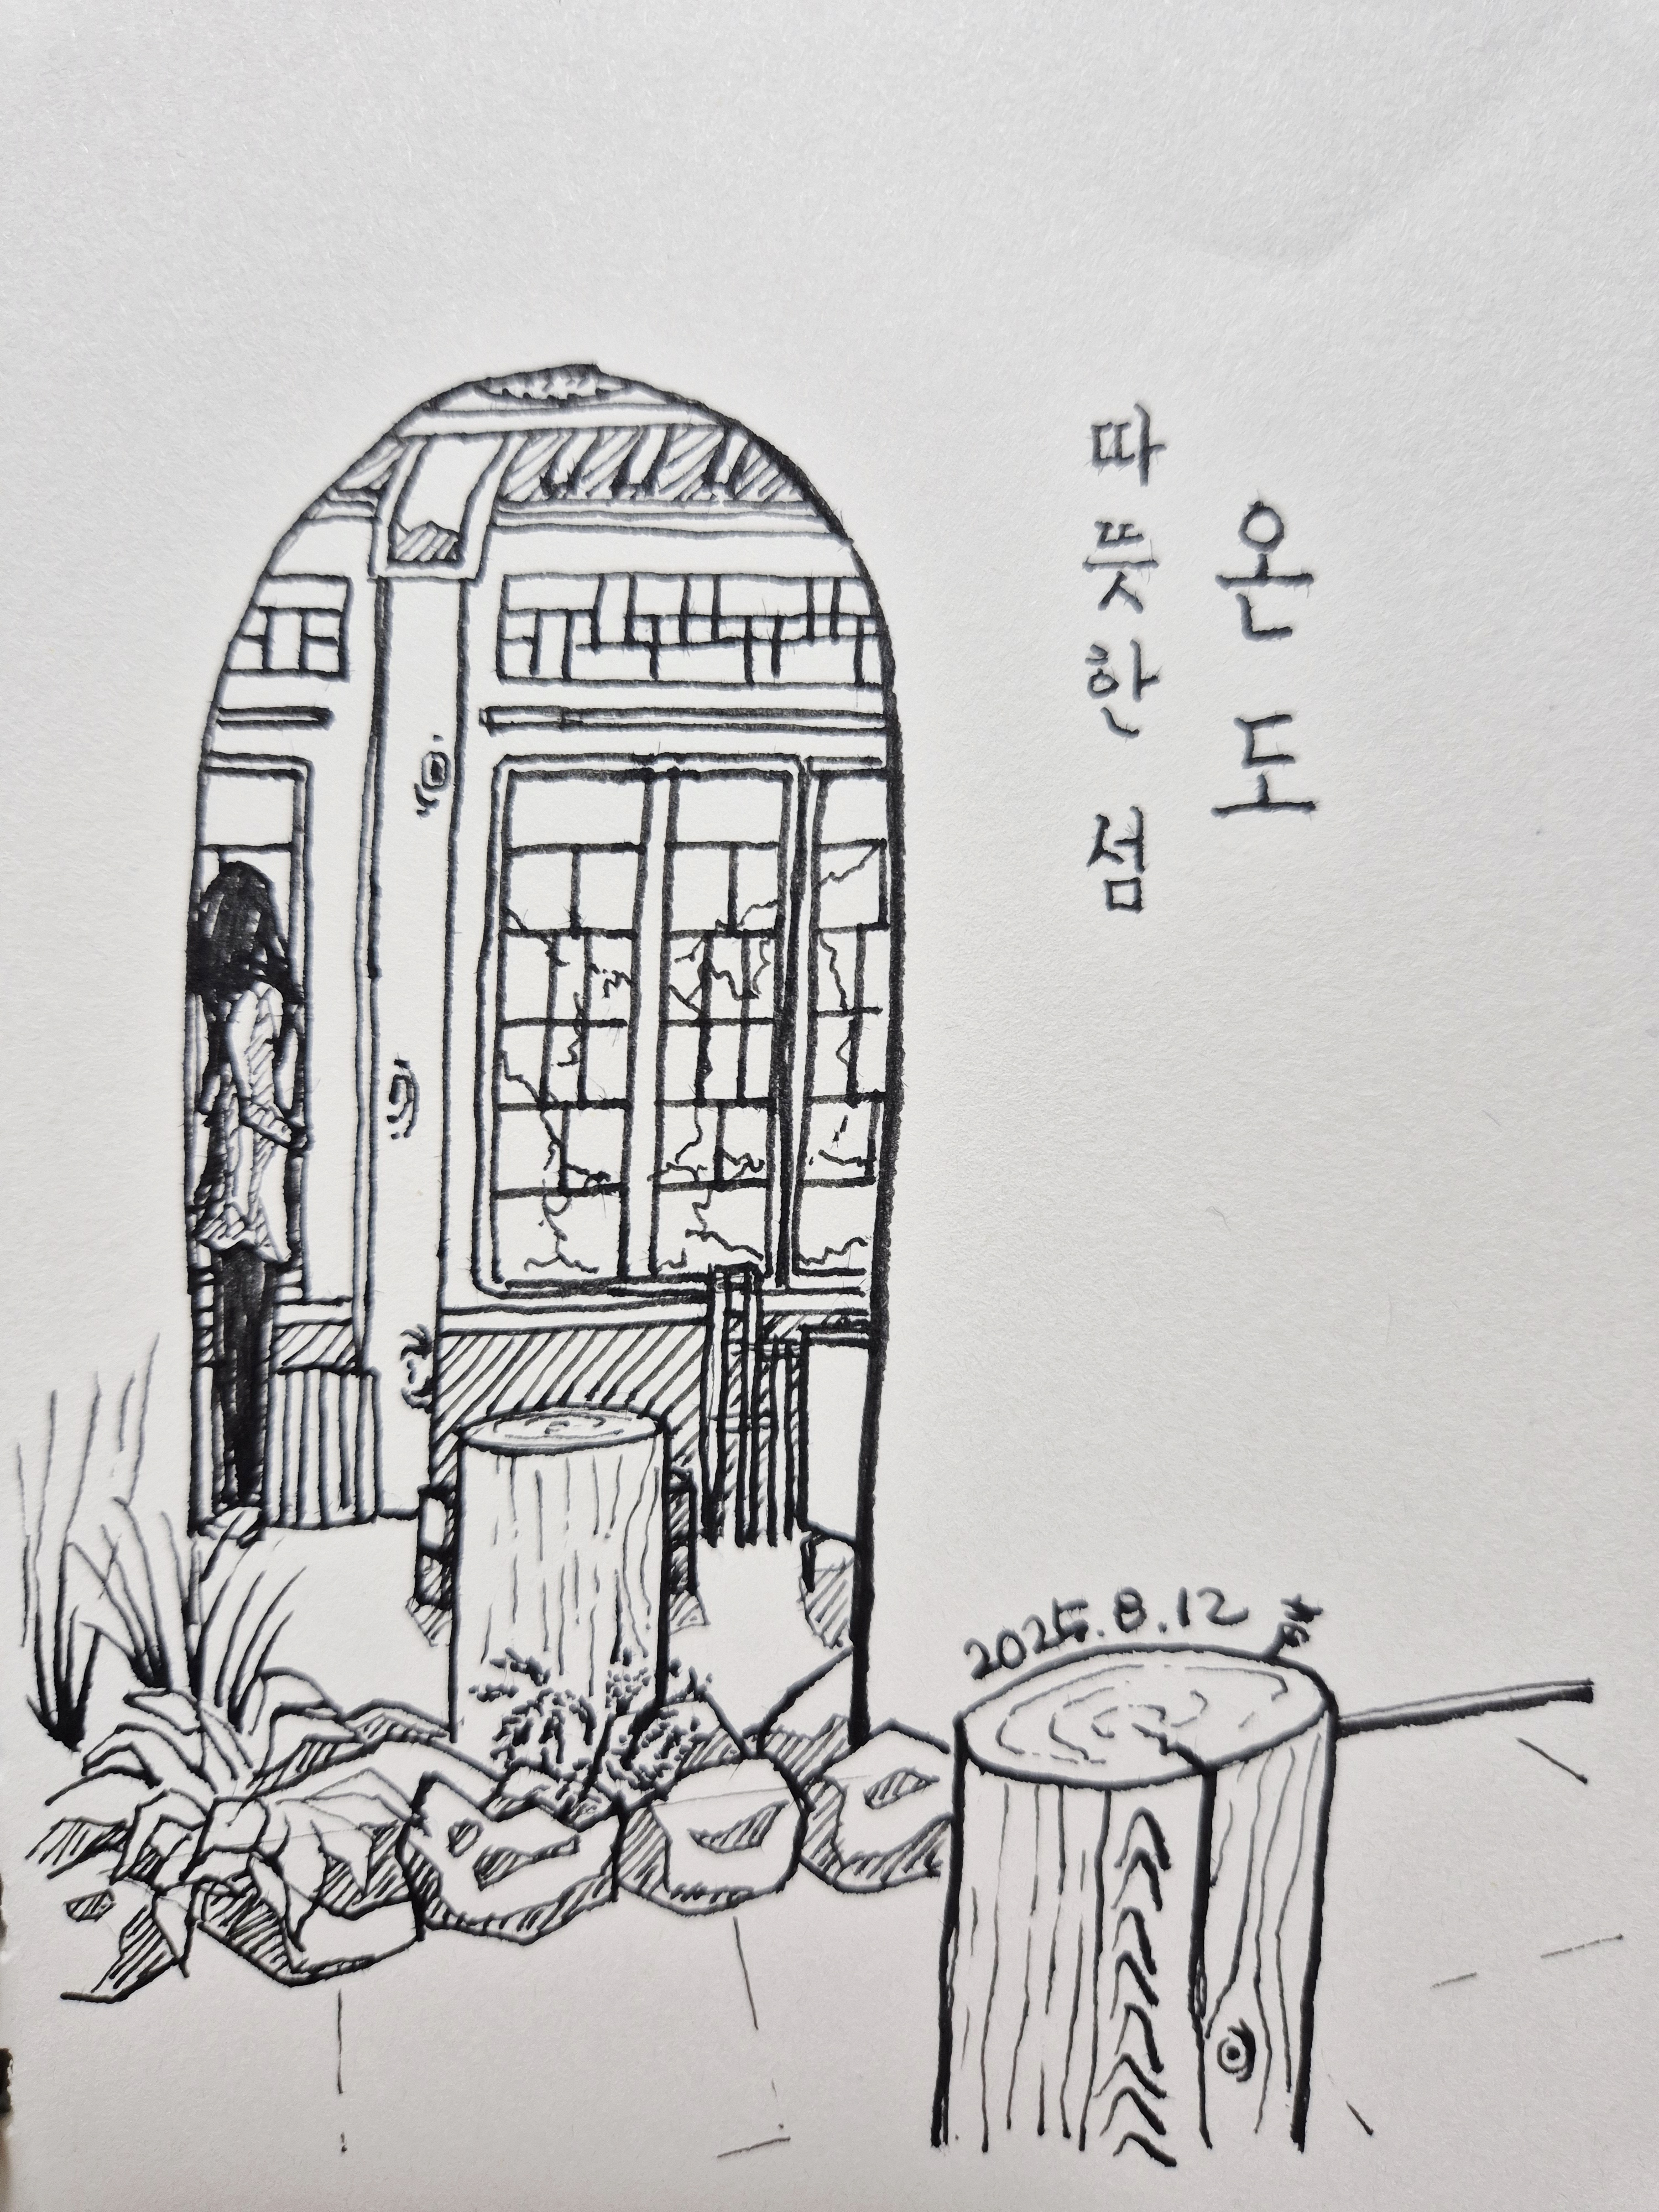 온도
따뜻한 섬
2025.8.12